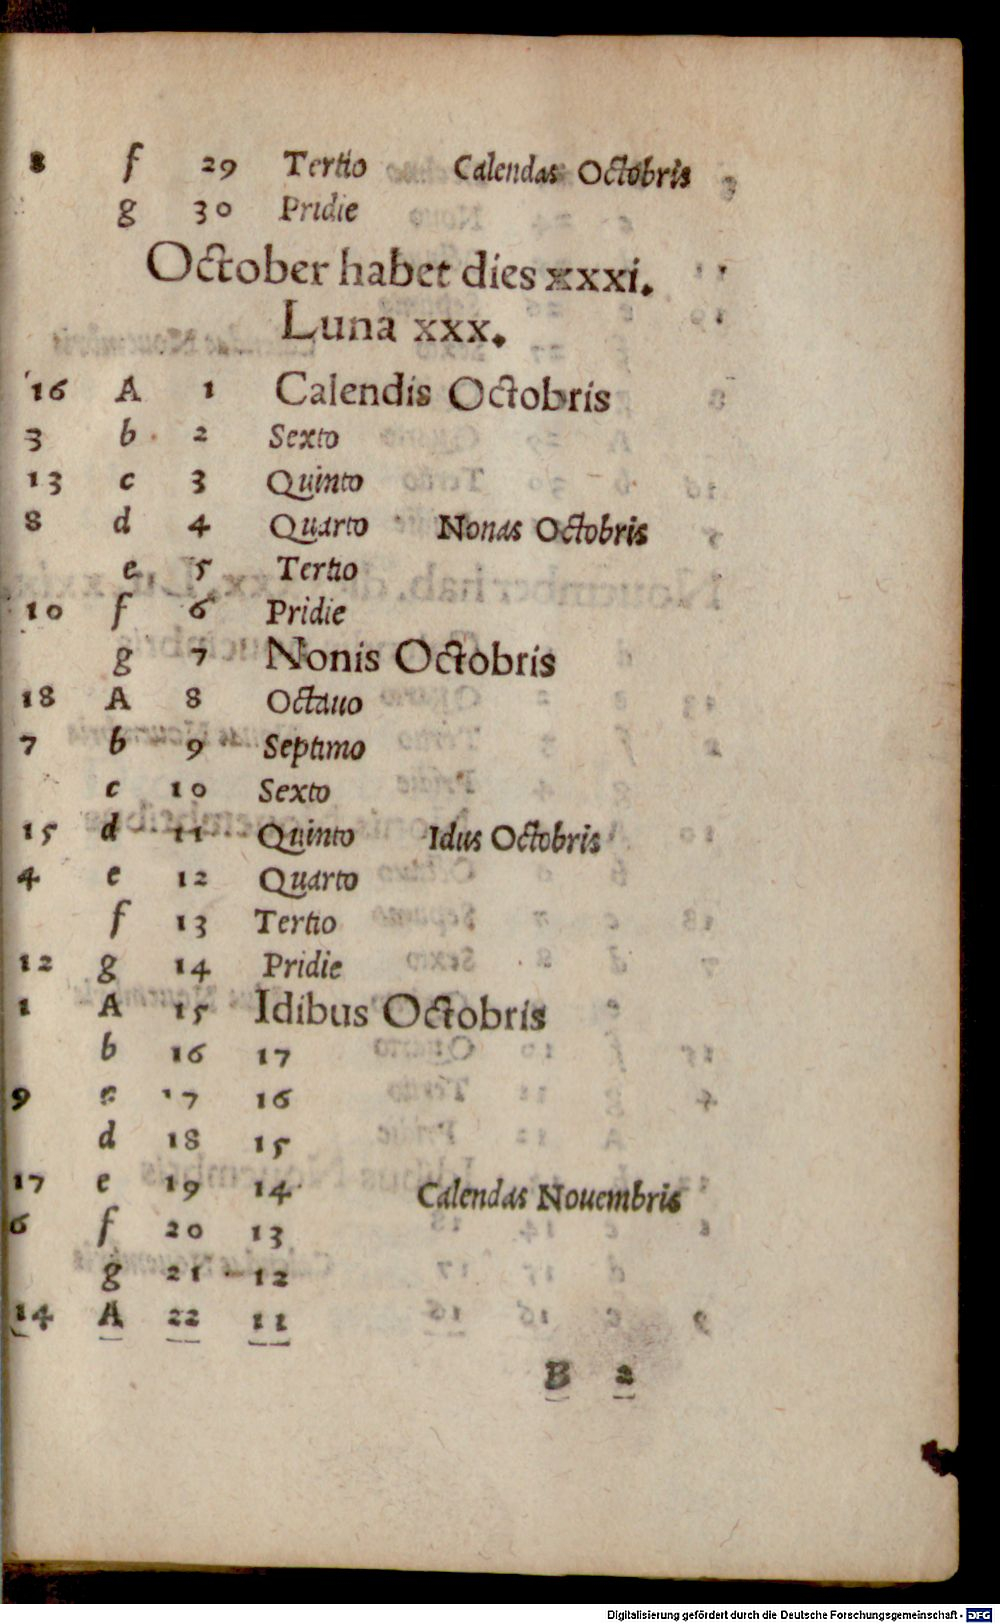 8 f 29 Tertio Calendas Octobris
g 30 Pridie
October habet dies xxxi.
Luna xxx.
16 A 1 Calendis Octobris
3 b 2 Sexto
13 c 3 Quinto
8 d 4 Quarto Nonas Octobris
e 5 Tertio
10 f 6 Pridie
g 7 Nonis Octobris
18 A 8 Octauo
7 b 9 Septimo
c 10 Sexto
15 d 11 Quinto Idus Octobris
4 e 12 Quarto
f 13 Tertio
12 g 14 Pridie
1 A 15 Idibus Octobris
b 16 17
9 c 17 16
d 18 15
17 e 19 14 Calendas Nouembris
6 f 20 13
g 21 12
14 A 22 11
B 2
Digitalisierung gefördert durch die Deutsche Forschungsgemeinschaft - DFG